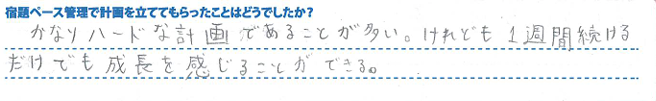 宿題ペース管理で計画を立ててもらったことはどうでしたか?
かなりハードな計画であることが多い。けれども1週間続ける
だけでも成長を感じることができる。